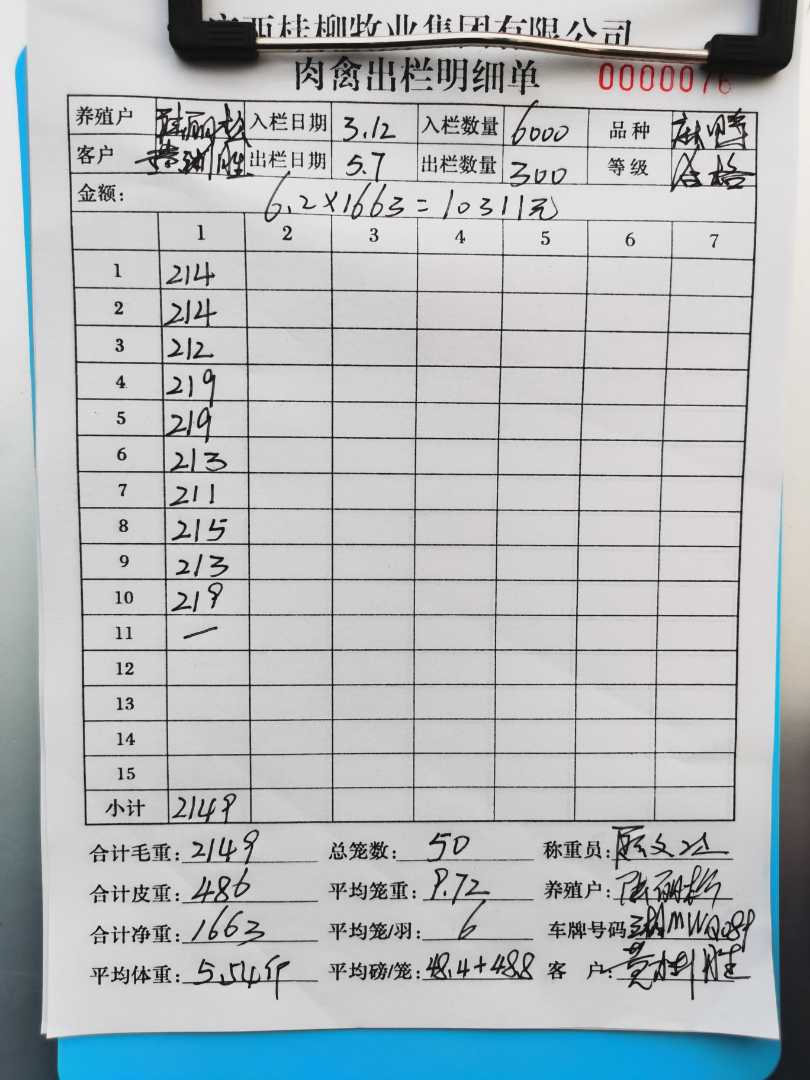 广西桂柳牧业集团有限公司
肉禽出栏明细单 0000076
养殖户 入栏日期 3.12 入栏数量 6000 品种 麻鸭
客户 出栏日期 5.7 出栏数量 300 等级 合格
金额: 6.2×1663=10311元
1 2 3 4 5 6 7
1 214
2 214
3 212
4 219
5 219
6 213
7 211
8 215
9 213
10 219
11 —
12
13
14
15
小计 2149
合计毛重: 2149 总笼数: 50 称重员:
合计皮重: 486 平均笼重: 9.72 养殖户:
合计净重: 1663 平均笼/羽: 6 车牌号码
平均体重: 5.54斤 平均磅/笼: 48.4+48.8 客户: